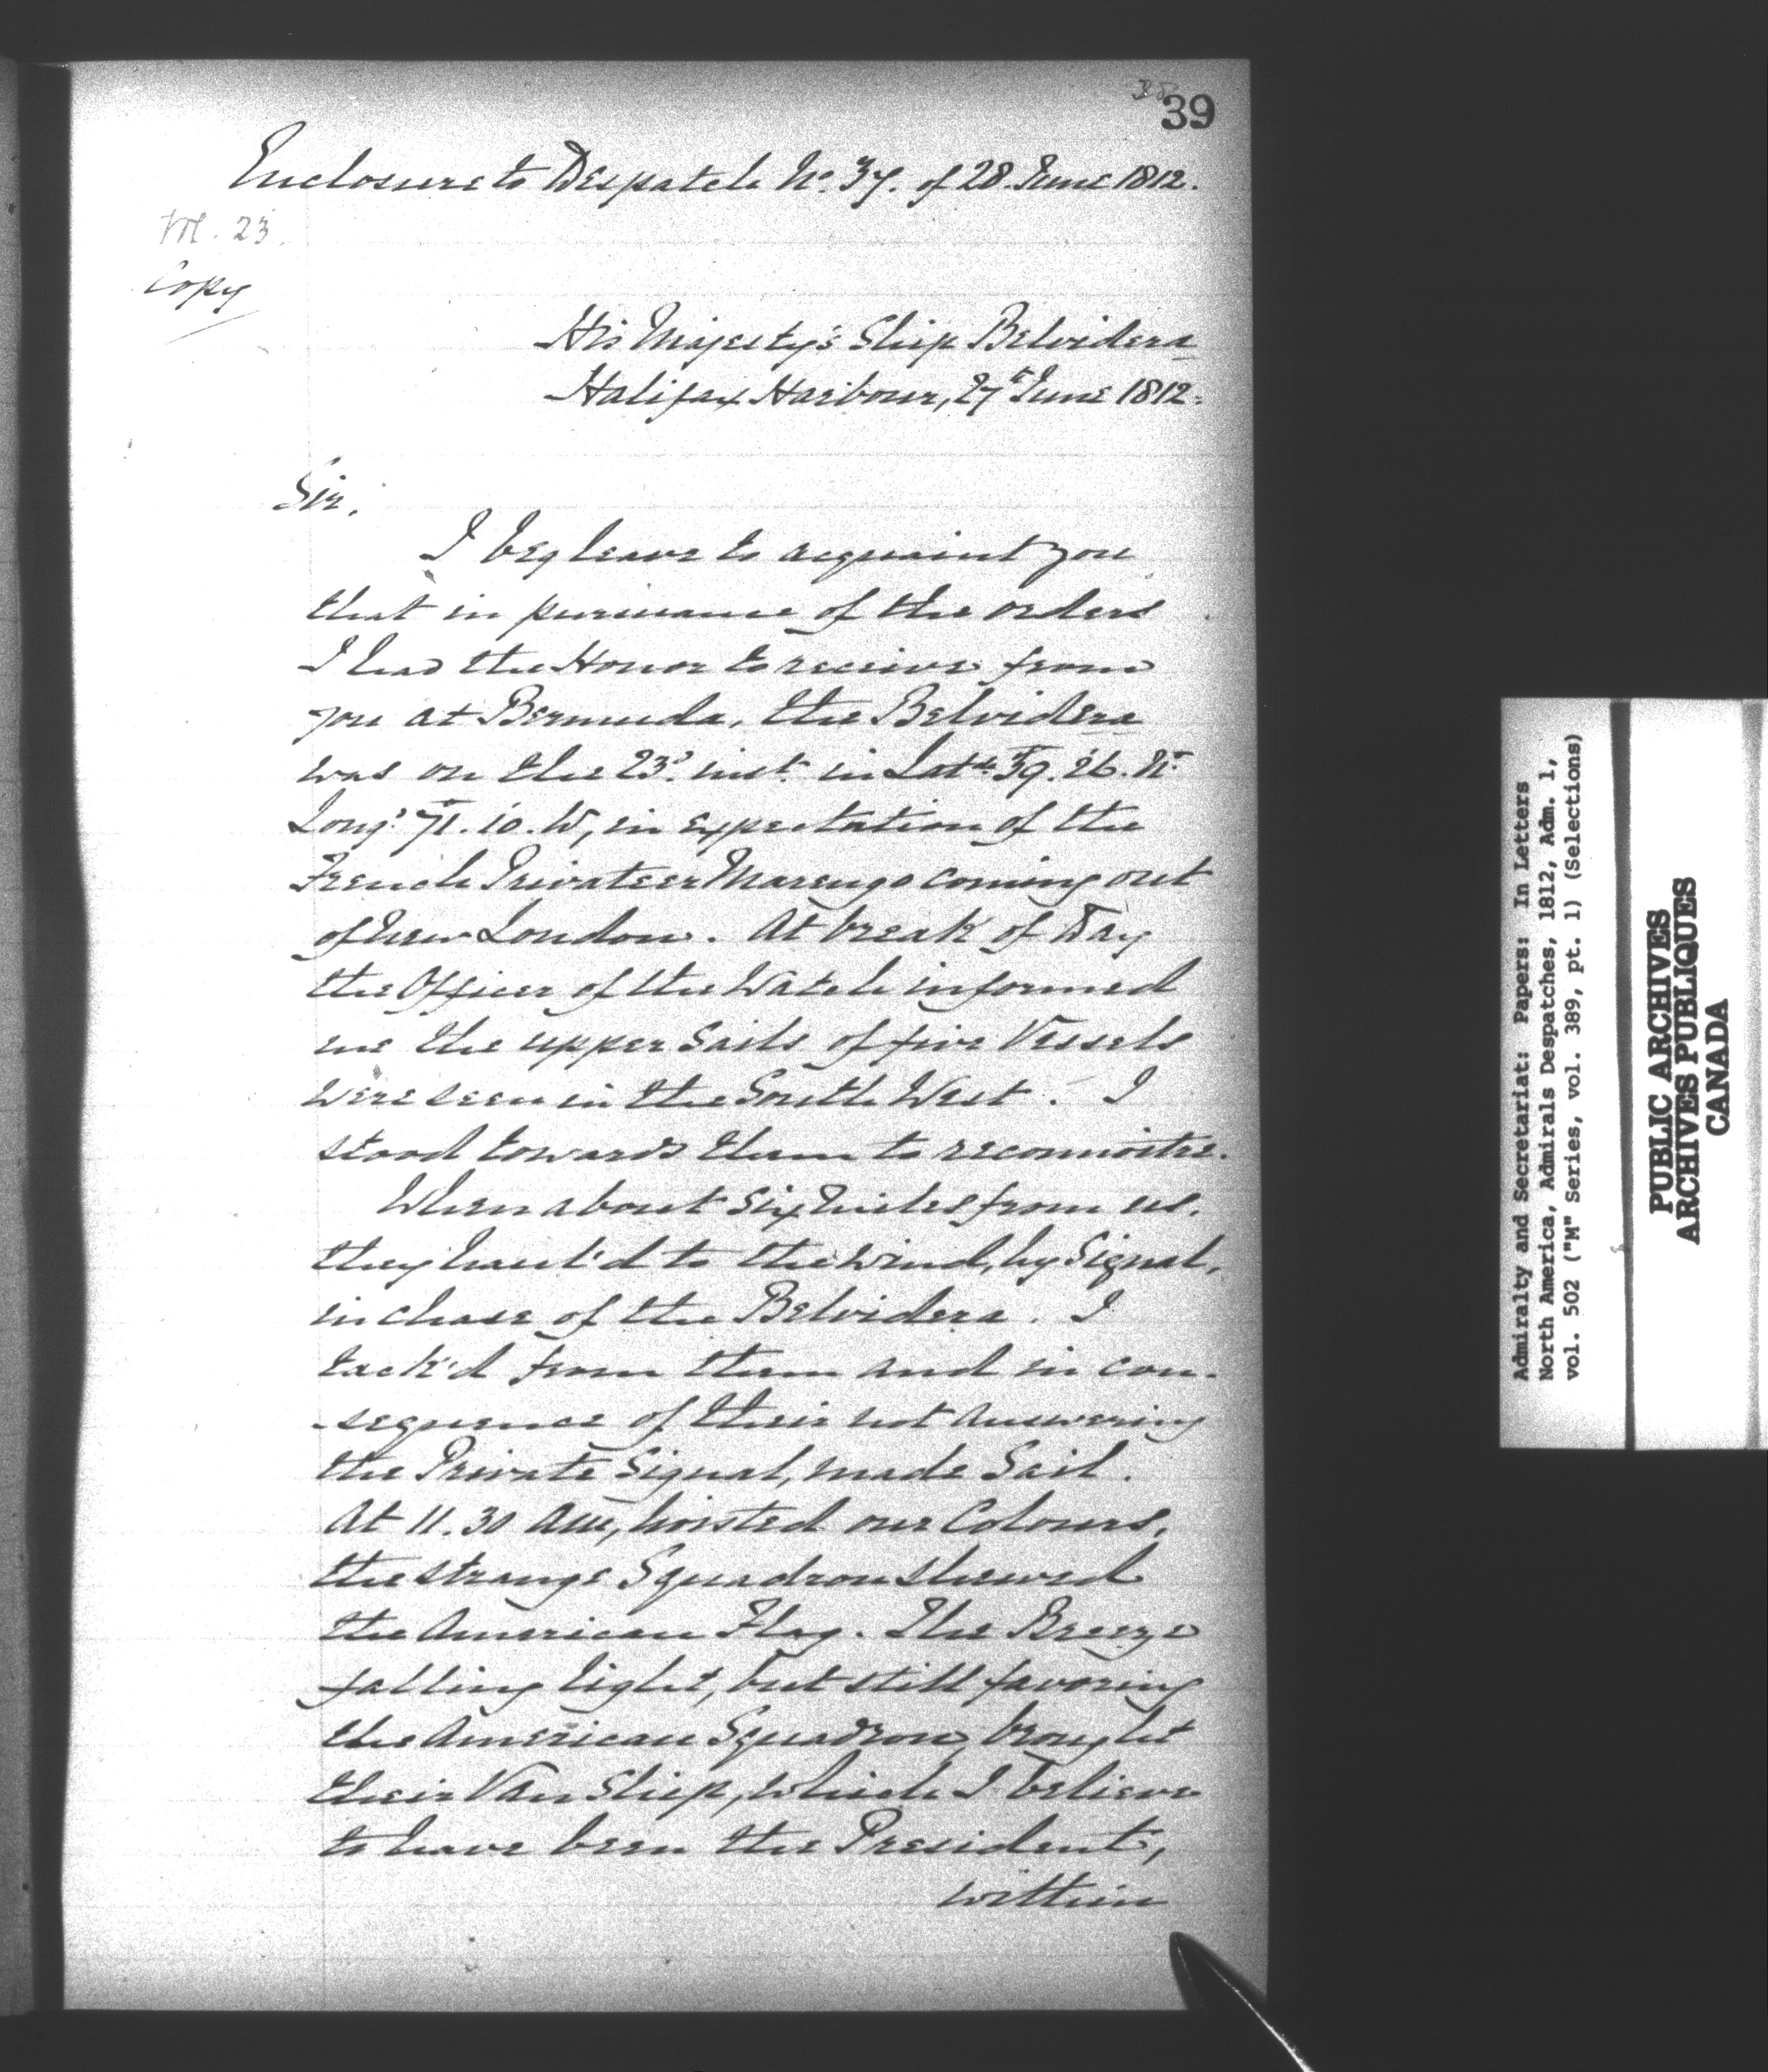 39
Enclosure to Despatch No. 37. of 28. June 1812.
Vol. 23.
Copy
His Majesty's Ship Belvidera
Halifax Harbour, 27th June 1812.
Sir,
I beg leave to acquaint you
that in pursuance of the orders
I had the Honor to receive from
you at Bermuda, the Belvidera
was on the 23d. inst. in Latde. 39. 26. N.
Longe. 71. 10. W, in expectation of the
French Privateer Marengo coming out
of New London. At break of Day
the Officer of the Watch informed
me the upper Sails of five Vessels
were seen in the South West. I
stood towards them to reconnoitre.
When about six Miles from us,
they haul'd to the wind, by Signal,
in chase of the Belvidera. I
tack'd from them and in con-
-sequence of their not Answering
the Private Signal, made Sail.
At 11.30 AM, hoisted our Colours,
the strange Squadron shewed
the American Flag. The Breeze
falling light, but still favoring
the American Squadron, brought
their Van Ship, which I believe
to have been the President,
within
Admiralty and Secretariat: Papers: In Letters
North America, Admirals Despatches, 1812, Adm. 1,
vol. 502 ("M" Series, vol. 389, pt. 1) (Selections)
PUBLIC ARCHIVES
ARCHIVES PUBLIQUES
CANADA